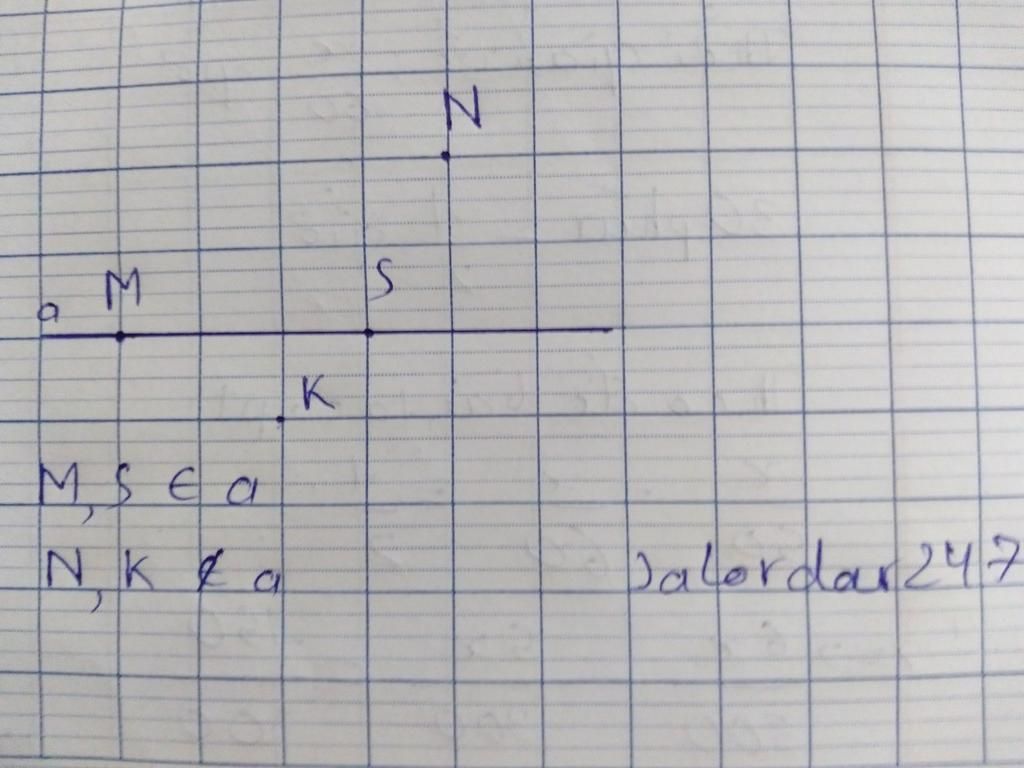 N
a M S
K
M, S ∈ a
N, K ∉ a
Jalordar247